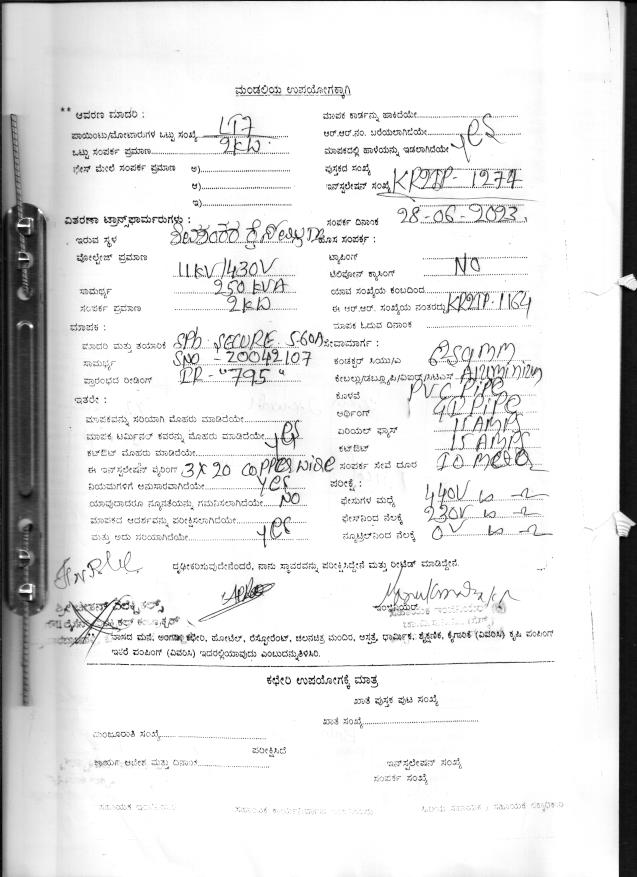 ಮಂಡಲಿಯ ಉಪಯೋಗಕ್ಕಾಗಿ
** ಆವರಣ ಮಾದರಿ :
ಪಾಯಿಂಟು/ಮೋಟಾರುಗಳ ಒಟ್ಟು ಸಂಖ್ಯೆ LT7
ಒಟ್ಟು ಸಂಪರ್ಕ ಪ್ರಮಾಣ 2KW
ಫೇಸ್ ಮೇಲೆ ಸಂಪರ್ಕ ಪ್ರಮಾಣ ಅ)
ಆ)
ಇ)
ಮಾಪಕ ಕಾರ್ಡನ್ನು ಹಾಕಿದೆಯೇ
ಆರ್.ಆರ್.ನಂ. ಬರೆಯಲಾಗಿದೆಯೇ
ಮಾಪಕದಲ್ಲಿ ಹಾಳೆಯನ್ನು ಇಡಲಾಗಿದೆಯೇ YES
ಪುಸ್ತಕದ ಸಂಖ್ಯೆ
ಇನ್‌ಸ್ಟಲೇಷನ್ ಸಂಖ್ಯೆ KR2TP-1274
ಸಂಪರ್ಕ ದಿನಾಂಕ 28-06-2023
ವಿತರಣಾ ಟ್ರಾನ್ಸ್‌ಫಾರ್ಮರುಗಳು :
ಇರುವ ಸ್ಥಳ
ವೋಲ್ಟೇಜ್ ಪ್ರಮಾಣ 11KV/430V
ಸಾಮರ್ಥ್ಯ 250 KVA
ಸಂಪರ್ಕ ಪ್ರಮಾಣ 2KW
ಹೊಸ ಸಂಪರ್ಕ :
ಟ್ಯಾಪಿಂಗ್
ಟೆಲಿಫೋನ್ ಕ್ರಾಸಿಂಗ್ NO
ಯಾವ ಸಂಖ್ಯೆಯ ಕಂಬದಿಂದ
ಈ ಆರ್.ಆರ್. ಸಂಖ್ಯೆಯ ನಂತರದ್ದು KR2TP-1164
ಮಾಪಕ ಓದುವ ದಿನಾಂಕ
ಮಾಪಕ :
ಮಾದರಿ ಮತ್ತು ತಯಾರಿಕೆ SPh SECURE 5-60A
ಸಾಮರ್ಥ್ಯ SNO - 20042107
ಪ್ರಾರಂಭದ ರೀಡಿಂಗ್ IR- "795"
ಸೇವಾಮಾರ್ಗ :
ಕಂಡಕ್ಟರ್ ಸಿಯು/ಎ
ಕೇಬಲ್ಲು/ಡಬ್ಲ್ಯೂಪಿ/ವಿಐಆರ್/ಸಿಟಿಎಸ್ Aluminium
ಕೊಳವೆ PVC PIPE
ಅರ್ಥಿಂಗ್ GI PIPE
ಏರಿಯಲ್ ಫ್ಯೂಸ್ 15 AMPS
ಕಟ್‌ಔಟ್ 15 AMPS
ಸಂಪರ್ಕ ಸೇವೆ ದೂರ 10
ಇತರೇ :
ಮಾಪಕವನ್ನು ಸರಿಯಾಗಿ ಮೊಹರು ಮಾಡಿದೆಯೇ
ಮಾಪಕ ಟರ್ಮಿನಲ್ ಕವರನ್ನು ಮೊಹರು ಮಾಡಿದೆಯೇ YES
ಕಟ್‌ಔಟ್ ಮೊಹರು ಮಾಡಿದೆಯೇ
ಈ ಇನ್‌ಸ್ಟಲೇಷನ್ ವೈರಿಂಗ್ 3X20 COPPER WIRE
ನಿಯಮಗಳಿಗೆ ಅನುಸಾರವಾಗಿದೆಯೇ YES
ಯಾವುದಾದರೂ ನ್ಯೂನತೆಯನ್ನು ಗಮನಿಸಲಾಗಿದೆಯೇ NO
ಮಾಪಕದ ಆದರ್ಶವನ್ನು ಪರೀಕ್ಷಿಸಲಾಗಿದೆಯೇ
ಮತ್ತು ಅದು ಸರಿಯಾಗಿದೆಯೇ YES
ಪರೀಕ್ಷೆ :
ಫೇಸುಗಳ ಮಧ್ಯೆ 440V
ಫೇಸ್‌ನಿಂದ ನೆಲಕ್ಕೆ 230V
ನ್ಯೂಟ್ರಲ್‌ನಿಂದ ನೆಲಕ್ಕೆ 0V
ದೃಢೀಕರಿಸುವುದೇನೆಂದರೆ, ನಾನು ಸ್ಥಾವರವನ್ನು ಪರೀಕ್ಷಿಸಿದ್ದೇನೆ ಮತ್ತು ರೀಟೆಡ್ ಮಾಡಿದ್ದೇನೆ.
ಇಂಜಿನಿಯರ್
** ವಾಸದ ಮನೆ, ಅಂಗಡಿ, ಕಛೇರಿ, ಹೋಟೆಲ್, ರೆಸ್ಟೋರೆಂಟ್, ಚಲನಚಿತ್ರ ಮಂದಿರ, ಆಸ್ಪತ್ರೆ, ಧಾರ್ಮಿಕ, ಶೈಕ್ಷಣಿಕ, ಕೈಗಾರಿಕೆ (ವಿವರಿಸಿ) ಕೃಷಿ ಪಂಪಿಂಗ್
ಇತರೆ ಪಂಪಿಂಗ್ (ವಿವರಿಸಿ) ಇದರಲ್ಲಿಯಾವುದು ಎಂಬುದನ್ನುತಿಳಿಸಿರಿ.
ಕಛೇರಿ ಉಪಯೋಗಕ್ಕೆ ಮಾತ್ರ
ಖಾತೆ ಪುಸ್ತಕ ಪುಟ ಸಂಖ್ಯೆ
ಖಾತೆ ಸಂಖ್ಯೆ
ಮಂಜೂರಾತಿ ಸಂಖ್ಯೆ
ಪರೀಕ್ಷಿಸಿದೆ
ಕಾರ್ಯ ಆದೇಶ ಮತ್ತು ದಿನಾಂಕ
ಇನ್‌ಸ್ಟಲೇಷನ್ ಸಂಖ್ಯೆ
ಸಂಪರ್ಕ ಸಂಖ್ಯೆ